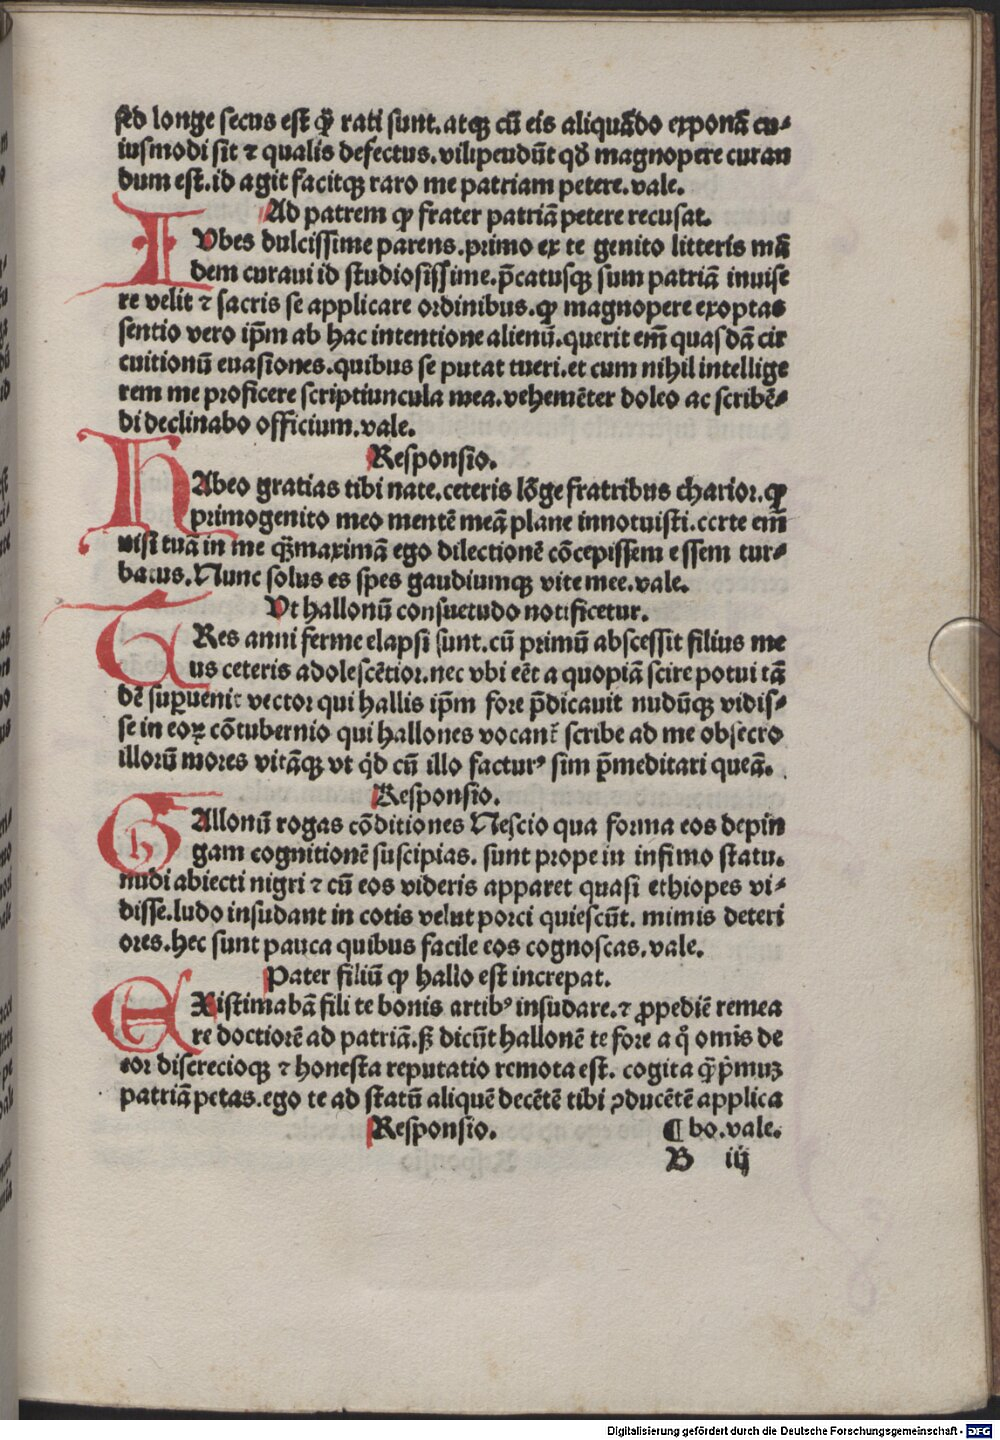 sed longe secus est ꝙ̃ rati sunt. atqꝫ cū eis aliquādo exponā cu⸗
iusmodi sit ⁊ qualis defectus. vilipendūt qð magnopere curan
dum est. id agit facitqꝫ raro me patriam petere. vale.
Ad patrem ꝙ frater patriā petere recusat.
IUbes dulcissime parens. primo ex te genito litteris mā
dem curaui id studiosissime. p̄catusqꝫ sum patriā inuise
re velit ⁊ sacris se applicare ordinibus. ꝙ magnopere exoptas
sentio vero ip̄m ab hac intentione alienū. querit em̄ quasdā cir
cuitionū euasiones. quibus se putat tueri. et cum nihil intellige
rem me proficere scriptiuncula mea. vehemēter doleo ac scribē⸗
di declinabo officium. vale.
Responsio.
HAbeo gratias tibi nate. ceteris lōge fratribus charior. ꝙ
primogenito meo mentē meā plane innotuisti. certe em̄
nisi tuā in me ꝙ̄maximā ego dilectionē cōcepissem essem tur⸗
batus. Nunc solus es spes gaudiumqꝫ vite mee. vale.
Vt hallonū consuetudo notificetur.
TRes anni ferme elapsi sunt. cū primū abscessit filius me
us ceteris adolescētior. nec vbi eēt a quopiā scire potui tā
dē supuenit vector qui hallis ip̄m fore p̄dicauit nudūqꝫ vidis⸗
se in eoꝝ cōtubernio qui hallones vocant̄ scribe ad me obsecro
illorū mores vitāqꝫ vt qd̓ cū illo factur⁹ sim p̄meditari queā.
Responsio.
HAllonū rogas cōditiones Nescio qua forma eos depin
gam cognitionē suscipias. sunt prope in infimo statu.
nudi abiecti nigri ⁊ cū eos videris apparet quasi ethiopes vi⸗
disse. ludo insudant in cotis velut porci quiescūt. mimis deteri
ores. hec sunt pauca quibus facile eos cognoscas. vale.
Pater filiū ꝙ hallo est increpat.
EXistimabā fili te bonis artib⁹ insudare. ⁊ ꝓpediē remea
re doctiorē ad patriā. sꝫ dicūt hallonē te fore a qͦ omis de
cor discrecioqꝫ ⁊ honesta reputatio remota est. cogita ꝙ̄ p̄muꝫ
patriā petas. ego te ad statū aliquē decētē tibi ꝯducētē applica
Responsio. ¶ bo. vale.
B iij
Digitalisierung gefördert durch die Deutsche Forschungsgemeinschaft - DFG